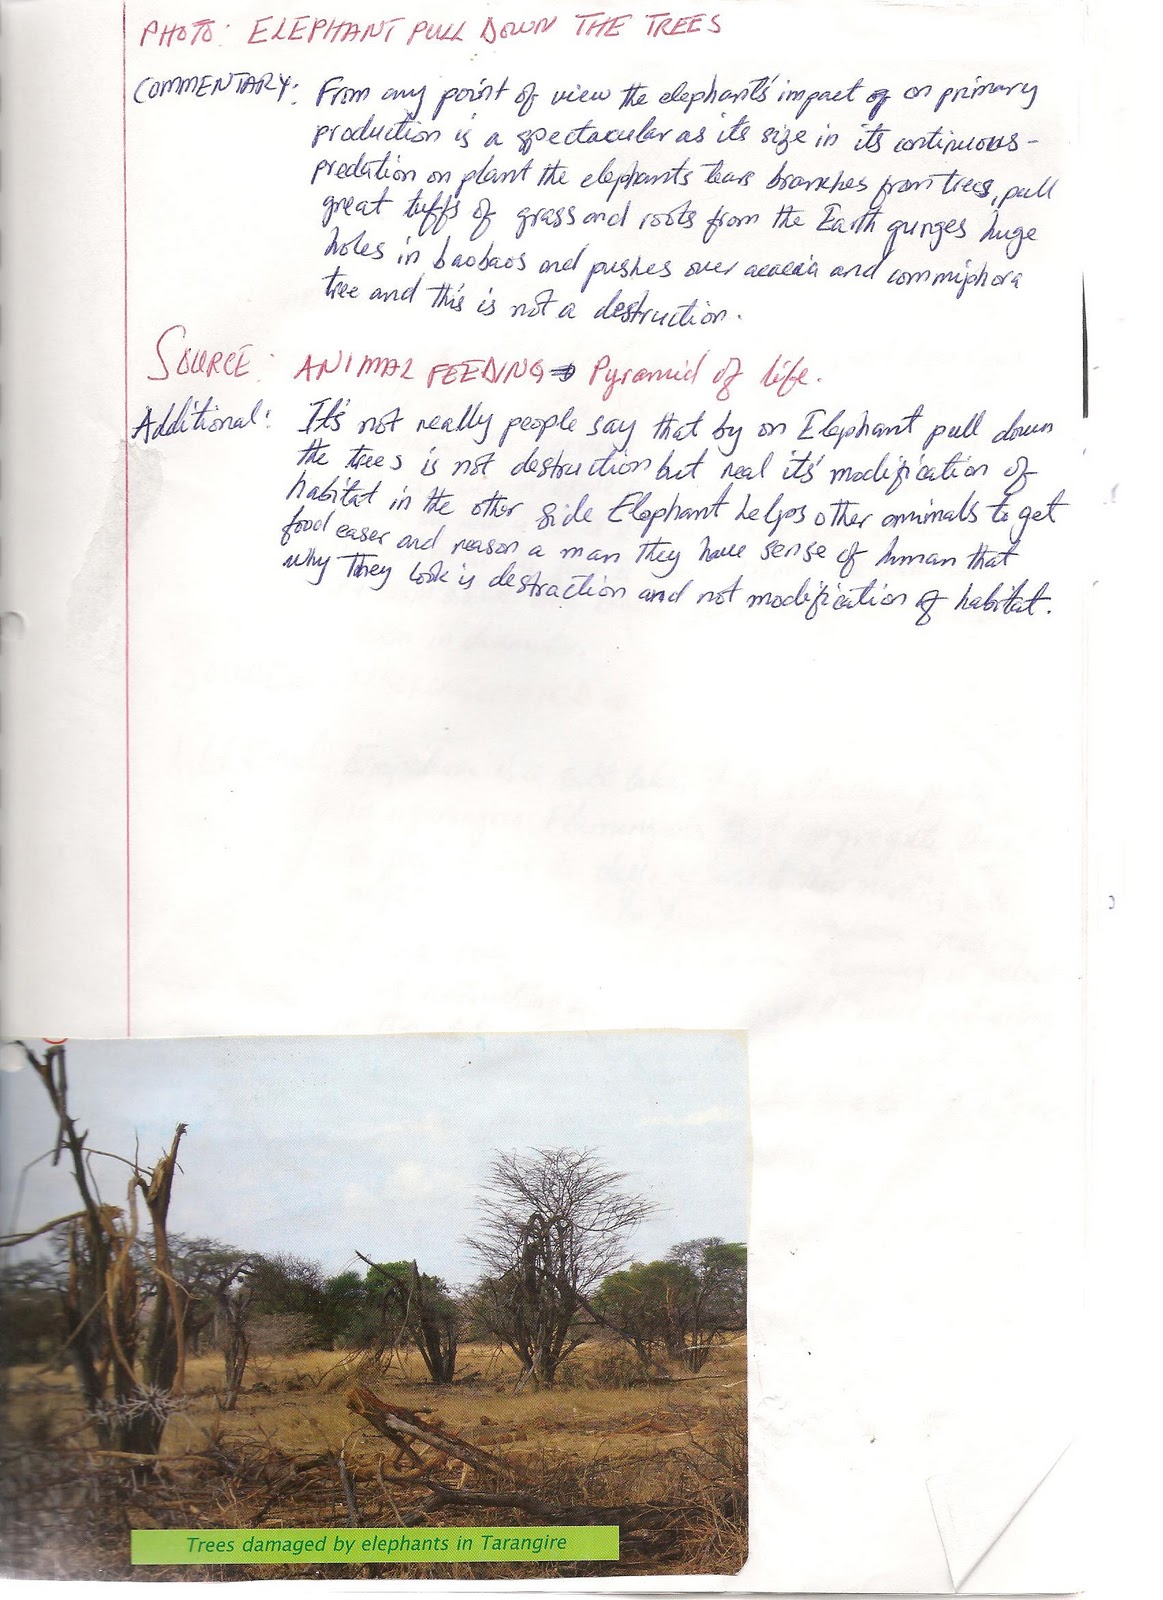 PHOTO: ELEPHANT PULL DOWN THE TREES
COMMENTARY: From any point of view the elephant's impact of on primary
production is a spectacular as its size in its continuous-
predation on plant the elephants tears branches from trees, pull
great tuffs of grass and roots from the Earth gunges huge
holes in baobaos and pushes over acacia and commiphora
tree and this is not a destruction.
SOURCE: ANIMAL FEEDING → Pyramid of life.
Additional: It's not really people say that by an Elephant pull down
the trees is not destruction but real its' modification of
habitat in the other side Elephant helps other animals to get
food easer and reason a man they have sense of human that
why They look is destraction and not modification of habitat.
Trees damaged by elephants in Tarangire